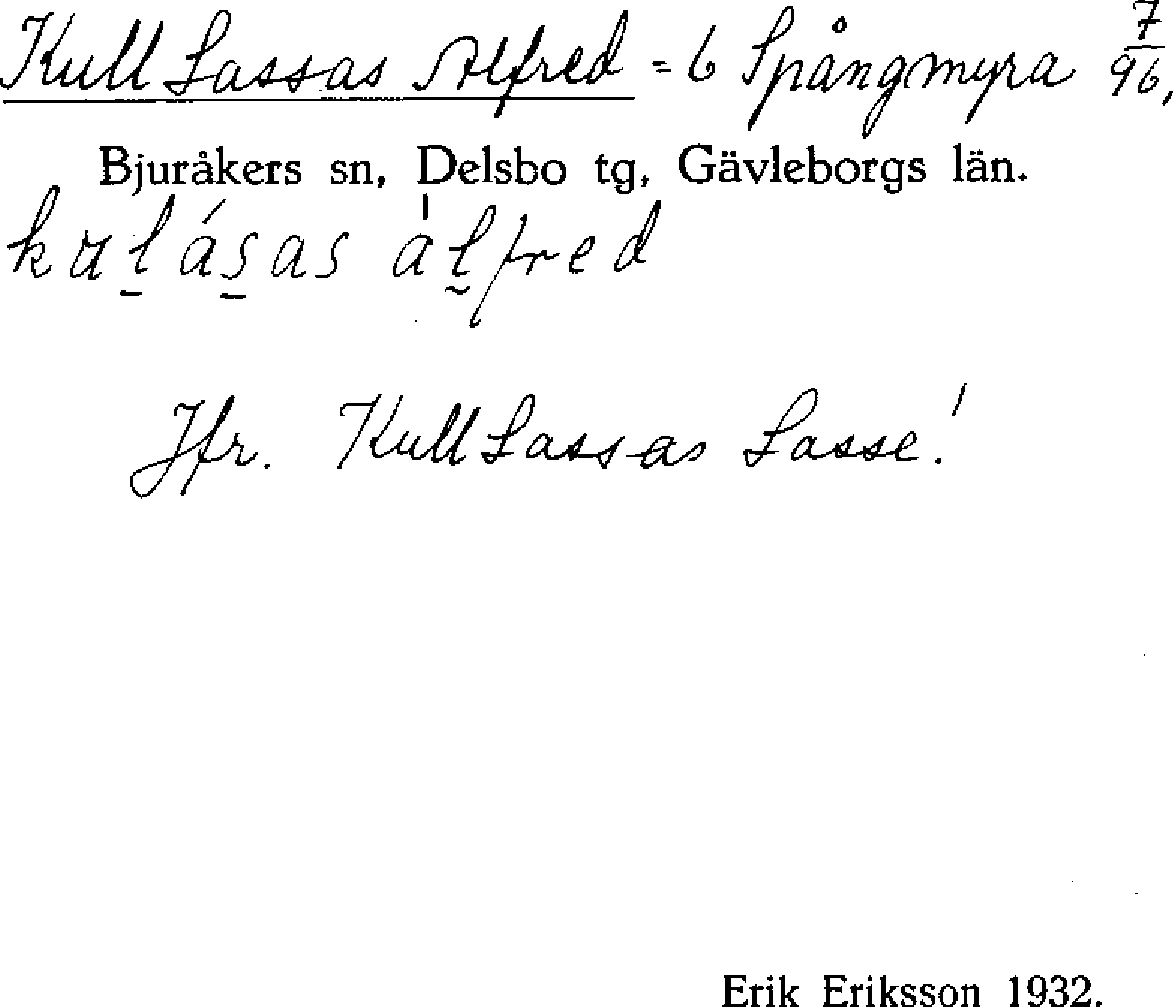 Kull Lassas Alfred = 6 Spångmyra 7/96,
Bjuråkers sn, Delsbo tg, Gävleborgs län.
kul̠ás̠as ál̰fred
Jfr. Kull Lassas Lasse!
Erik Eriksson 1932.